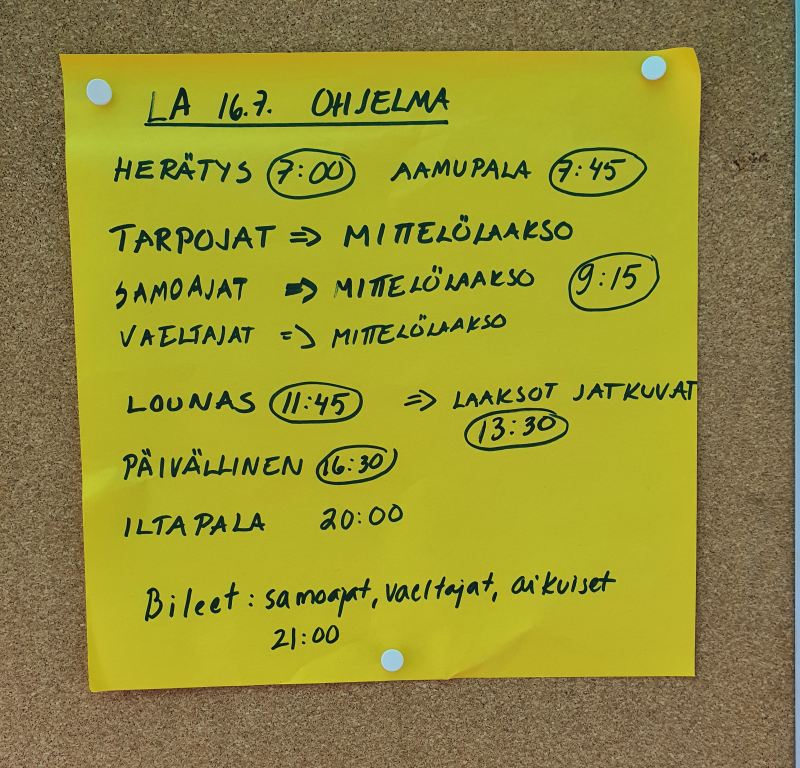 LA 16.7. OHJELMA
HERÄTYS 7:00 AAMUPALA 7:45
TARPOJAT => MITTELÖLAAKSO
SAMOAJAT => MITTELÖLAAKSO 9:15
VAELTAJAT => MITTELÖLAAKSO
LOUNAS 11:45 => LAAKSOT JATKUVAT
13:30
PÄIVÄLLINEN 16:30
ILTAPALA 20:00
Bileet: samoajat, vaeltajat, aikuiset
21:00